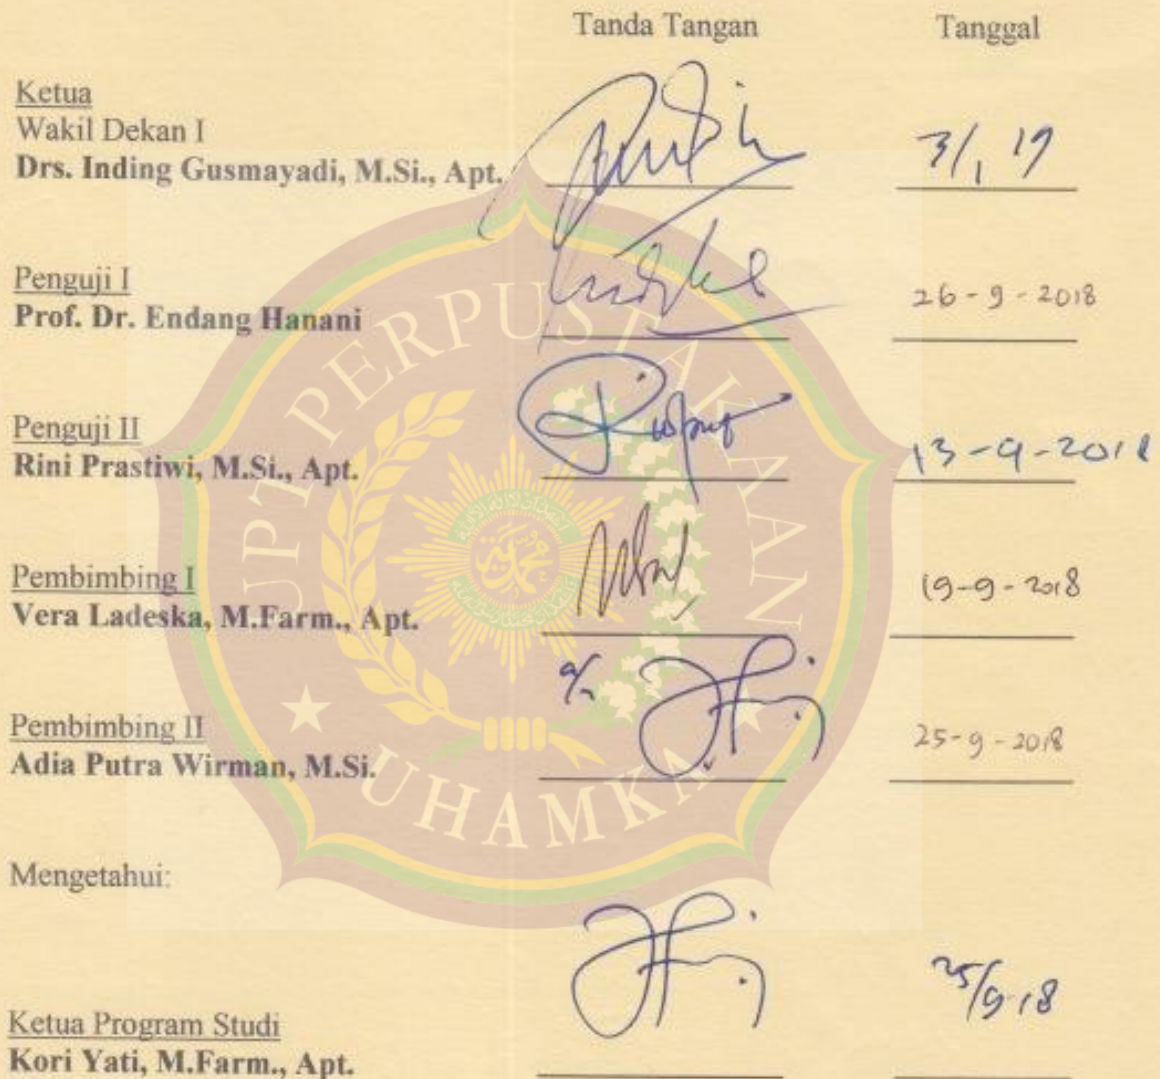 Tanda Tangan Tanggal
Ketua
Wakil Dekan I
Drs. Inding Gusmayadi, M.Si., Apt. 3/1 19
Penguji I
Prof. Dr. Endang Hanani 26-9-2018
Penguji II
Rini Prastiwi, M.Si., Apt. 13-9-2018
Pembimbing I
Vera Ladeska, M.Farm., Apt. 19-9-2018
a/n
Pembimbing II
Adia Putra Wirman, M.Si. 25-9-2018
Mengetahui:
Ketua Program Studi
Kori Yati, M.Farm., Apt. 25/9-18
UPT PERPUSTAKAAN
UHAMKA